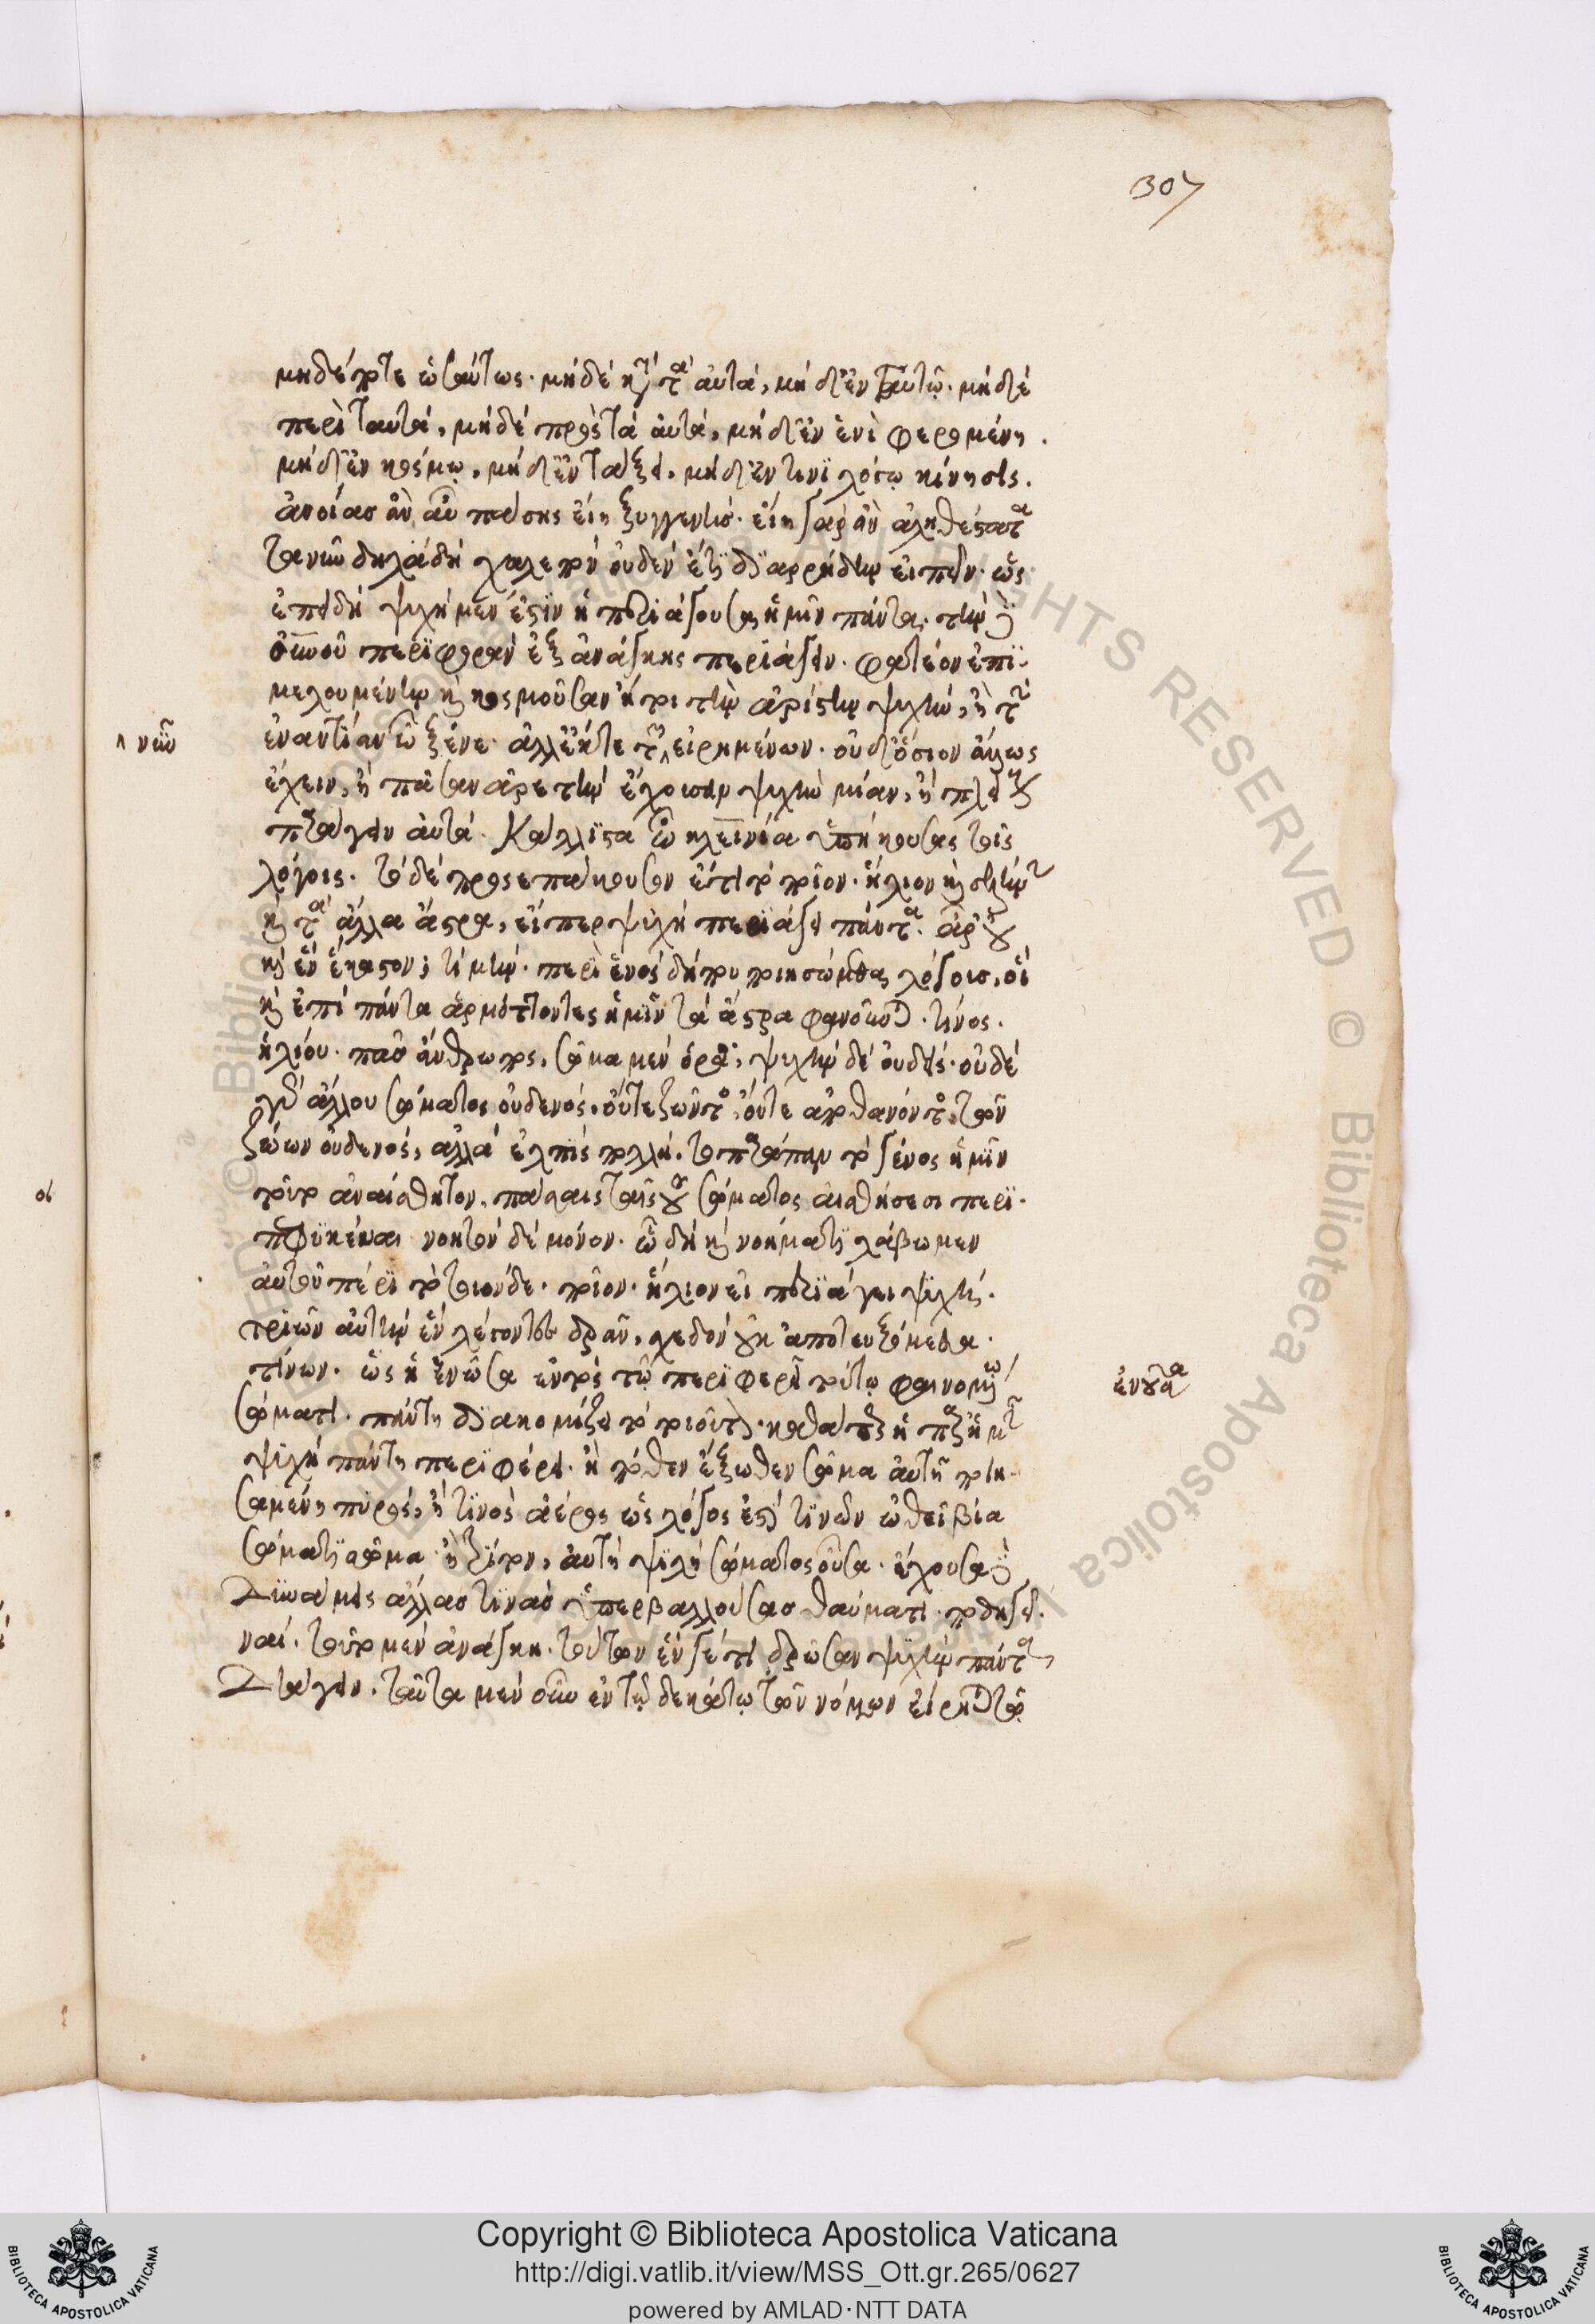 307
μηδέποτε ὡσαύτως. μηδὲ κατὰ τὰ αὐτά, μηδ' ἐν ταὐτῶ. μηδὲ
περὶ ταυτά, μηδὲ πρὸς τὰ αὐτά, μηδ' ἐν ἑνὶ φερομένη.
μηδ' ἐν κόσμω, μηδ' ἐν τάξει, μηδ' ἐν τινὶ λόγω κίνησις.
ἀνοίας ἂν αὖ πάσης εἴη ξυγγενὶς. εἴη γὰρ ἂν ἀληθέστατα
τανῦν δηλαδὴ χαλεπὸν οὐδὲν ἔτι διαρρήδην εἰπεῖν. ὡς
ἐπειδὴ ψυχὴ μὲν ἐστιν ἡ περιάγουσα ἡμῖν πάντα, τὴν δὲ
οὐρανοῦ περιφορὰν ἐξ ἀνάγκης περιάγειν. φατέον ἐπι
μελουμένην καὶ κοσμοῦσαν ἤτοι τὴν ἀρίστην ψυχήν, ἢ τὴν
ἐναντίαν ὦ ξένε. ἀλλ' ἔκ τε τῶν εἰρημένων. οὐδ' ὅσιον ἄλλως
^ νῦν
ἔχειν, ἢ πᾶσαν ἀρετὴν ἔχουσαν ψυχὴν μίαν, ἢ πλείους
περιάγειν αὐτά. Κάλλιστα ὦ κλεινία ὑπήκουσας τοῖς
λόγοις. τόδε προσεπάκουσον ἔτι τὸ ποῖον. ἥλιον καὶ σελήνην
καὶ τὰ ἄλλα ἄστρα, εἴπερ ψυχὴ περιάγει πάντα. ἆρ' οὐ
καὶ ἓν ἕκαστον; τί μήν. περὶ ἑνὸς δήπου ποιησώμεθα λόγους, οἳ
καὶ ἐπὶ πάντα ἁρμόττοντες ἡμῖν τὰ ἄστρα φανοῦνται. τίνος.
ἡλίου. πᾶς ἄνθρωπος, σῶμα μὲν ὁρᾶ, ψυχὴν δὲ οὐδείς. οὐδὲ
γὰρ ἄλλου σώματος οὐδενός, οὔτε ζῶντος, οὔτε ἀποθανόντος τῶν
ζώων οὐδενός, ἀλλὰ ἐλπὶς πολλὴ. τοπαράπαν τὸ γένος ἡμῖν
τοῦτο ἀναίσθητον, πάσαις ταῖς τοῦ σώματος αἰσθήσεσι περι
πεφυκέναι νοητὸν δὲ μόνον. ὦ δὴ καὶ νοήματι λάβωμεν
αὐτοῦ πέρι τὸ τοιόνδε. ποῖον. ἥλιον εἰ περιάγει ψυχὴ.
τριῶν αὐτὴν ἓν λέγοντες δρᾶν, σχεδὸν οὐκ ἀποτευξόμεθα.
τίνων. ὡς ἢ ἐνοῦσα ἐντὸς τῶ περιφερεῖ τούτω φαινομένω
ἐνοῦσα
σώματι. πάντη διακομίζει τὸ τοιοῦτον. καθάπερ ἡ παρ' ἡμῖν
ψυχὴ πάντη περιφέρει. ἢ πόθεν ἔξωθεν σῶμα αὑτῆ ποιη
σαμένη πυρός, ἤ τινος ἀέρος ὡς λόγος ἐστὶ τινῶν ὠθεῖ βία
σώματι σῶμα. ἢ τρίτον, αὐτὴ ψιλὴ σώματος οὖσα. ἔχουσα δὲ
Δυνάμεις ἄλλας τινὰς ὑπερβαλλούσας θαύματι ποδηγεῖ.
ναί. τοῦτο μὲν ἀνάγκη. τούτων ἕν γέ τι δρῶσαν ψυχὴν πάντα
Διάγειν. ταῦτα μὲν οὖν ἐν τῶ δεκάτω τῶν νόμων εἴρηται τῶ